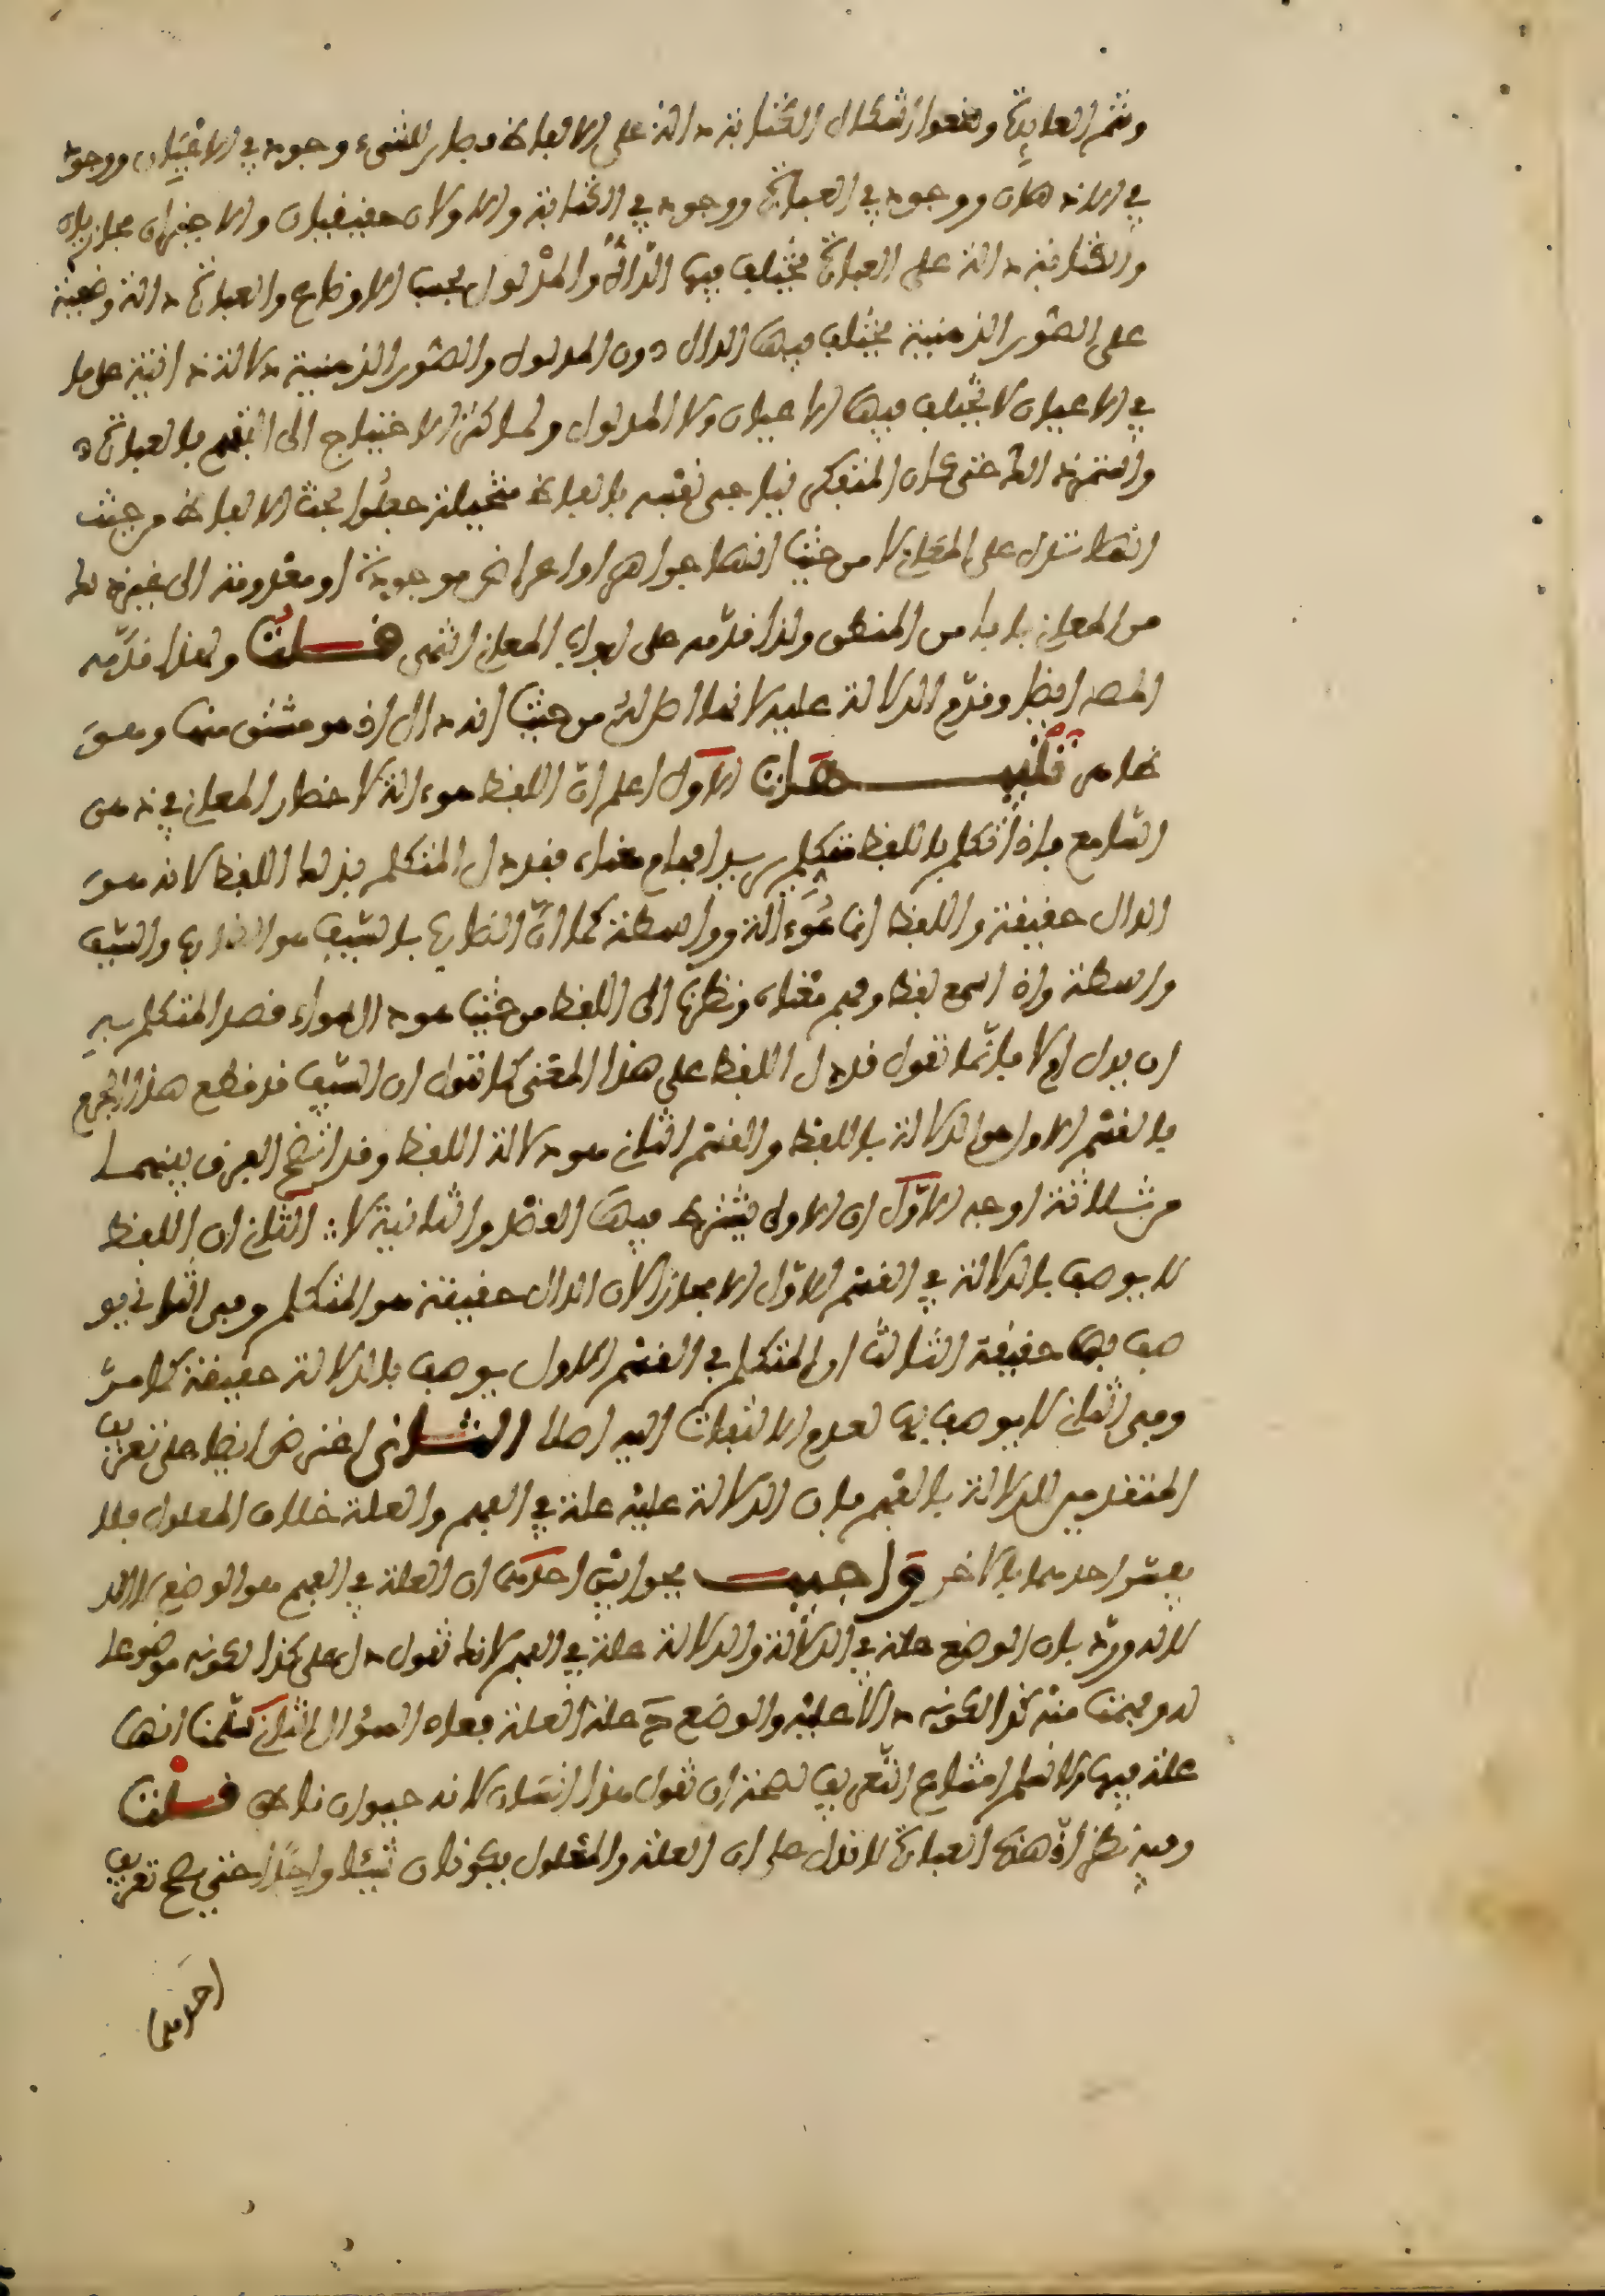 وتتم العايدة وضعوا اشكال الكتابة دالة على الالفاظ فصار للشيء وجود في الاعيان ووجود
في الاذهان ووجود في العبارة ووجود في الكتابة والاولان حقيقيان والاخيران مجازيان
والكتابة دالة على العبارة يختلف فيها الدال والمدلول بحسب الاوضاع والعبارة دالة وضعية
على الصور الذهنية يختلف فيها الدال دون المدلول والصور الذهنية دلالة ذاتية على ما
في الاعيان لا يختلف فيها الاعيان ولا المدلول ولما كثر الاحتياج الى التفهم بالعبارة
واستمر ذلك حتى كان المتفكر يناجي نفسه بالفاظ متخيلة جعلوا بحث الالفاظ من حيث
انها تدل على المعاني لا من حيث انها جواهر او اعراض موجودة او معدومة الى غير ذلك
من المعاني بابا من المنطق ولذا قدمه على ابواب المعاني انتهى قلت ولهذا قدمه
المص ايضا وقدم الدلالة عليه لانها اطرافه من حيث انه دال اذ هو مشتق منها وهو
ظاهر تنبيهان الاول اعلم ان اللفظ هو ءالة لاحضار المعاني في ذهن
السامع فاذا تكلم باللفظ متكلم يريد افهام معناه فقد دل المتكلم بذلك اللفظ لانه هو
الدال حقيقة واللفظ انما هو ءالة وواسطة كما ان الضارب بالسيف هو الضارب والسيف
واسطة واذا سمع لفظ وفهم معناه ونظرنا الى اللفظ من حيث هو دال سواء قصد المتكلم به
ان يدل ام لا فانما نقول قد دل اللفظ على هذا المعنى كما تقول ان السيف قد قطع هذا الجرم
فالقسم الاول هو الدلالة باللفظ والقسم الثاني هو دلالة اللفظ وقد اتضح الفرق بينهما
من ثلاثة اوجه الاول ان الاولى يشترط فيها القصد والثانية لا الثاني ان اللفظ
لا يوصف بالدلالة في القسم الاول الا مجازا لان الدال حقيقة هو المتكلم وفي الثاني يو
صف بها حقيقة الثالث ان المتكلم في القسم الاول يوصف بالدلالة حقيقة كما مر
وفي الثاني لا يوصف بها لعدم الالتفات اليه اصلا الثاني اعترض ايضا على تعريف
المتقدمين للدلالة بالفهم بان الدلالة عليه علة في الفهم والعلة خلاف المعلول فلا
يفسر احدهما بالاخر واجيب بجوابين احدهما ان العلة في الفهم هو الوضع لا الد
لالة ورد بان الوضع علة في الدلالة والدلالة علة في الفهم لانا نقول دل على كذا لكونه موضوعا
له وفهمنا منه كذا لكونه دالا عليه والوضع ح علة العلة فعاد السؤال الثاني سلمنا انها
علة فيه ولا نسلم امتناع التعريف لصحة ان تقول هذا انسان لانه حيوان ناطق قلت
وفيه نظر اذ هذه العبارة لا تدل على ان العلة والمعلول يكونان شيئا واحدا حتى يصح تعريف
احدهما